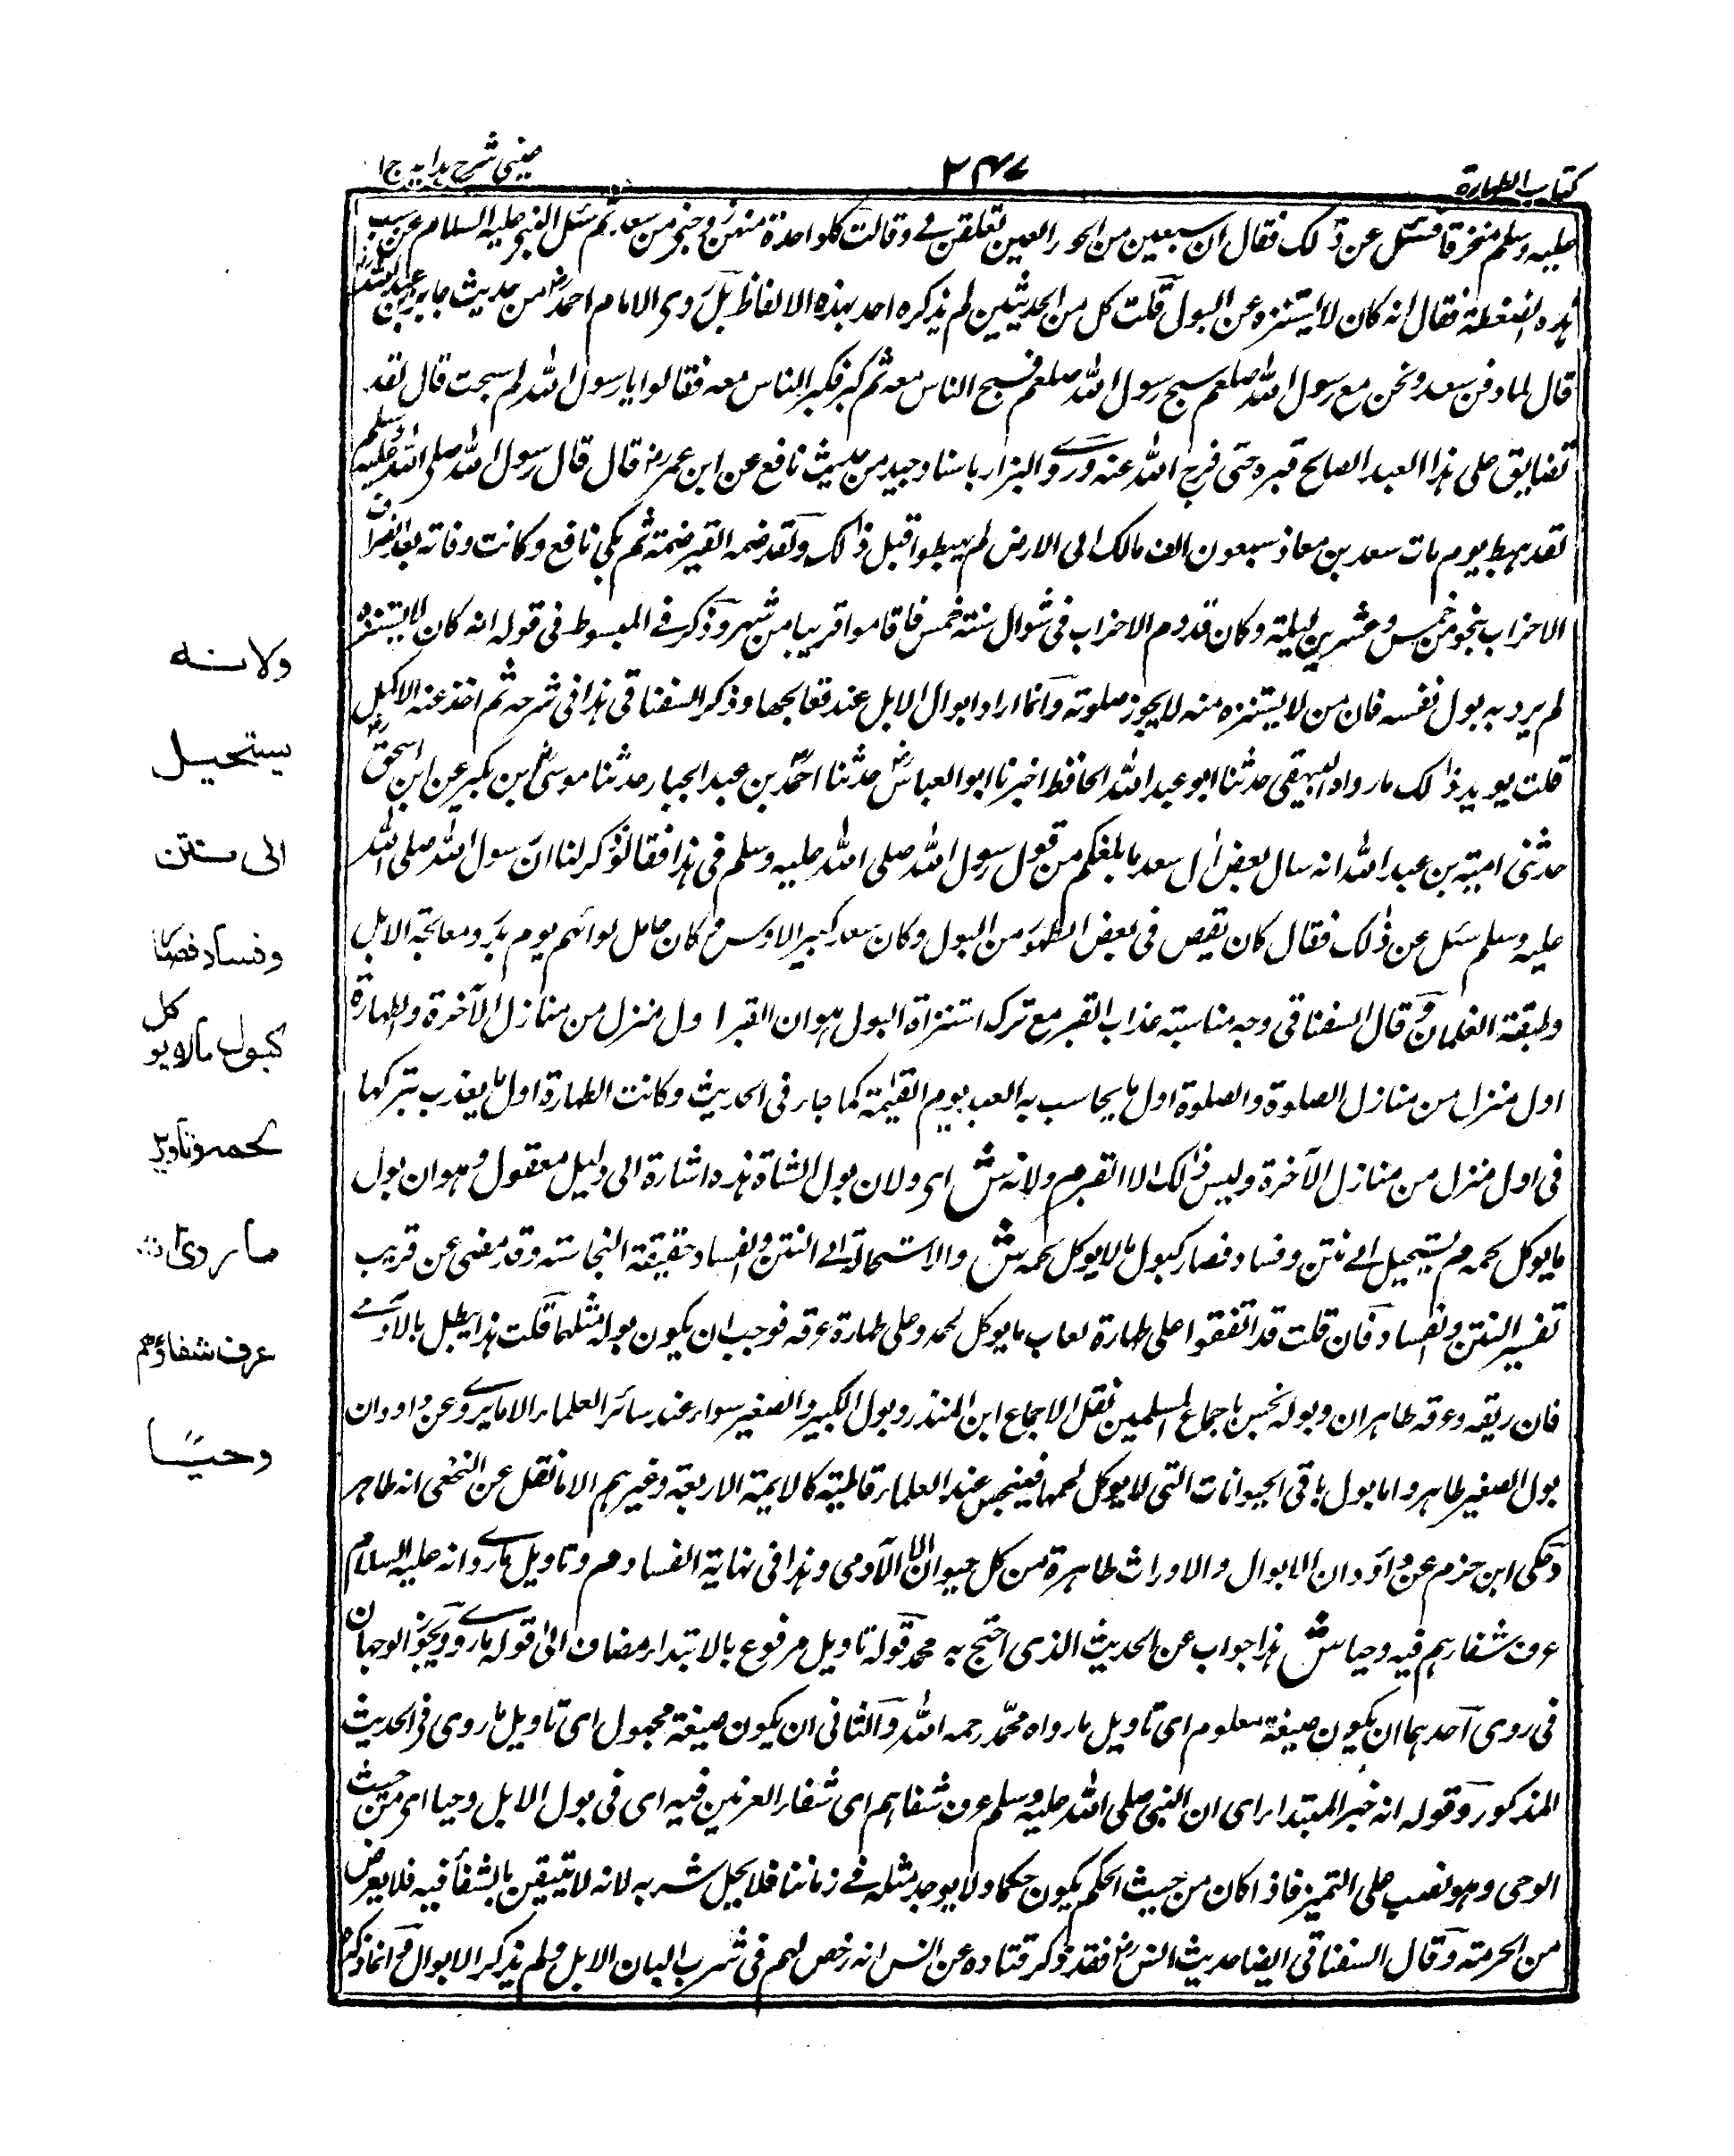 كتاب الطهارة
٢٤٧
عيني شرح هدايه ج١
عليه وسلم منخرقا فسئل عن ذلك فقال ان سبعين من الحور العين تعلقن في وقالت كل واحدة منهن زوجني من سعد ثم سئل النبي عليه السلام عن سبب
هذه الضغطة فقال انه كان لا يستنزه عن البول قلت كل من الحديثين لم يذكره احد بهذه الالفاظ بل روى الامام احمد رض من حديث جابر بن عبد الله رض
قال لما دفن سعد ونحن مع رسول الله صلعم سبح رسول الله صلعم فسبح الناس معه ثم كبر فكبر الناس معه فقالوا يا رسول الله لم سبحت قال لقد
تضايق على هذا العبد الصالح قبره حتى فرج الله عنه وروى البزار باسناد جيد من حديث نافع عن ابن عمر رض قال قال رسول الله صلى الله عليه وسلم
لقد هبط يوم مات سعد بن معاذ سبعون الف مالك الى الارض لم يهبطوا قبل ذلك ولقد ضمه القبر ضمة ثم بكى نافع وكانت وفاته بعد انصراف
الاحزاب بنحو من خمس وعشرين ليلة وكان قدوم الاحزاب في شوال سنة خمس فاقاموا قريبا من شهر وذكر في المبسوط في قوله انه كان لا يستنزه
لم يرد به بول نفسه فان من لا يستنزه منه لا يجوز صلوته وانما اراد ابوال الابل عند معالجها وذكر السغناقي هذا في شرحه ثم اخذ عنه الاكمل
قلت يويد ذلك ما رواه البيهقي حدثنا ابو عبد الله الحافظ اخبرنا ابو العباس حدثنا احمد بن عبد الجبار حدثنا موسى بن بكير عن ابن اسحق رض
حدثنى امية بن عبد الله انه سال بعض ال سعد ما بلغكم من قول رسول الله صلى الله عليه وسلم في هذا فقالوا ذكر لنا ان رسول الله صلى الله
عليه وسلم سئل عن ذلك فقال كان يقصر في بعض الطهور من البول وكان سعد كبير الاوس وكان حامل لوائهم يوم بدر ومعالجة الابل
وظيفة الغلمان وقال السغناقي وجه مناسبة عذاب القبر مع ترك استنزاه البول هو ان القبر اول منزل من منازل الآخرة والطهارة
اول منزل من منازل الصلوة والصلوة اول ما يحاسب به العبد يوم القيمة كما جاء في الحديث وكانت الطهارة اول ما يعذب بتركها
فى اول منزل من منازل الآخرة وليس ذلك الا القبر م ولانه ش اى ولان بول الشاة هذه اشارة الى دليل معقول وهو ان بول
ما يوكل لحمه م يستحيل الى نتن وفساد فصار كبول ما لا يوكل لحمه ش والاستحالة الى النتن والفساد حقيقة النجاسته وقد مضى عن قريب
تفسير النتن والفساد فان قلت قد اتفقوا على طهارة لعاب ما يوكل لحمه وعلى طهارة عرقه فوجب ان يكون بوله مثلهما قلت هذا يبطل بالآدمى
فان ريقه وعرقه طاهران وبوله نجس باجماع المسلمين نقل الاجماع ابن المنذر وبول الكبير والصغير سواء عند سائر العلماء الا ما يروى عن داود ان
بول الصغير طاهر واما بول باقى الحيوانات التى لا يوكل لحمها فينجس عند العلماء قاطبة كالايمة الاربعة وغيرهم الا ما نقل عن النخعى انه طاهر
وحكى ابن حزم عن داؤد ان الابوال والاوراث طاهرة من كل حيوان الا الآدمى وهذا فى نهاية الفساد م وتاويل ما روى انه عليه السلام
عرف شفاءهم فيه وحيا ش هذا جواب عن الحديث الذى احتج به محمد قوله تاويل مرفوع بالابتداء مضاف الى قوله ما روى ويجوز الوجهان
فى روى احدهما ان يكون صيغة معلوم اى تاويل ما رواه محمد رحمه الله والثانى ان يكون صيغة مجهول اى تاويل ما روى فى الحديث
المذكور وقوله انه خبر المبتداء اى ان النبى صلى الله عليه وسلم عرف شفاهم اى شفاء العرنين فيه اى فى بول الابل وحيا اى من حيث
الوحى وهو نصب على التميز فاذا كان من حيث الحكم يكون حكما ولا يوجد مثله في زماننا فلا يحل شربه لانه لا يتيقن بالشفأ فيه فلا يعرض
من الحرمته وقال السغناقى ايضا حديث انس رض فقد ذكر قتاده عن انس انه رخص لهم فى شرب البان الابل ولم يذكر الابوال وانما ذكره
ولانه
يستحيل
الى نتن
وفساد فصار
كبول ما لا يوكل
لحمه وتاويل
ما روى انه
عرف شفاؤهم
وحيًا